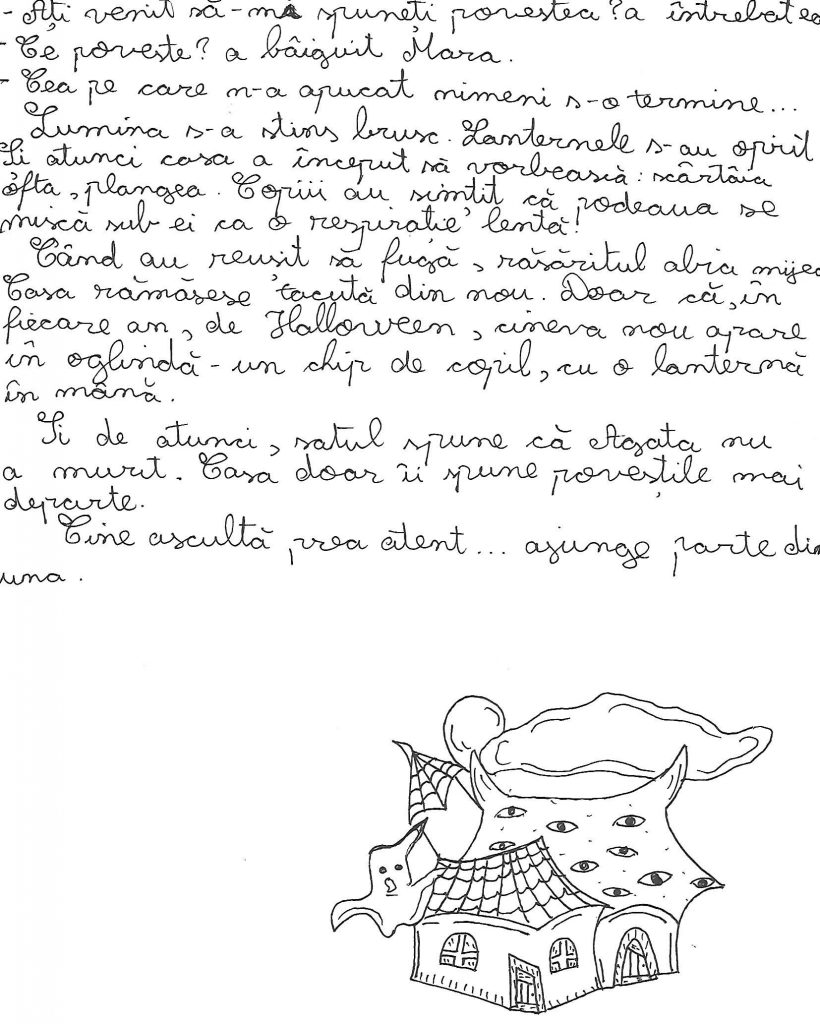 - Ați venit să-mi spuneți povestea? a întrebat ea
- Ce poveste? a bâiguit Mara.
- Cea pe care n-a apucat nimeni s-o termine...
Lumina s-a stins brusc. Lanternele s-au oprit
Și atunci casa a început să vorbească: scârțâia
ofta, plangea. Copiii au simțit că podeaua se
mișcă sub ei ca o respirație lentă!
Când au reusit să fugă, răsăritul abia mijea
Casa rămăsese tacută din nou. Doar că, în
fiecare an, de Halloween, cineva nou apare
în oglindă - un chip de copil, cu o lanternă
în mână.
Și de atunci, satul spune că Agata nu
a murit. Casa doar îi spune poveștile mai
departe.
Cine ascultă prea atent... ajunge parte din
una.